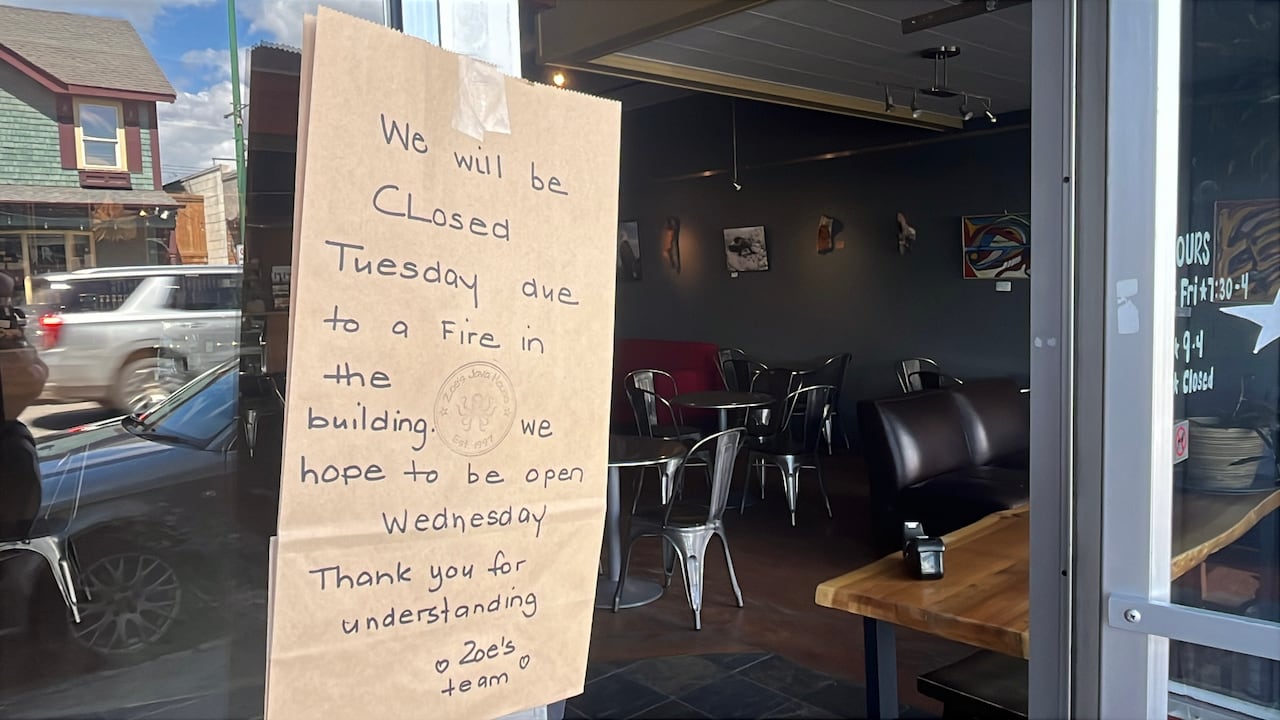 We will be
CLosed
Tuesday due
to a Fire in
the
building. we
hope to be open
Wednesday
Thank you for
understanding
♡ Zoe's ♡
team
★ Zoe's Java House ★
Est. 1997
OURS
Fri★7:30-4
★ 9-4
★ Closed